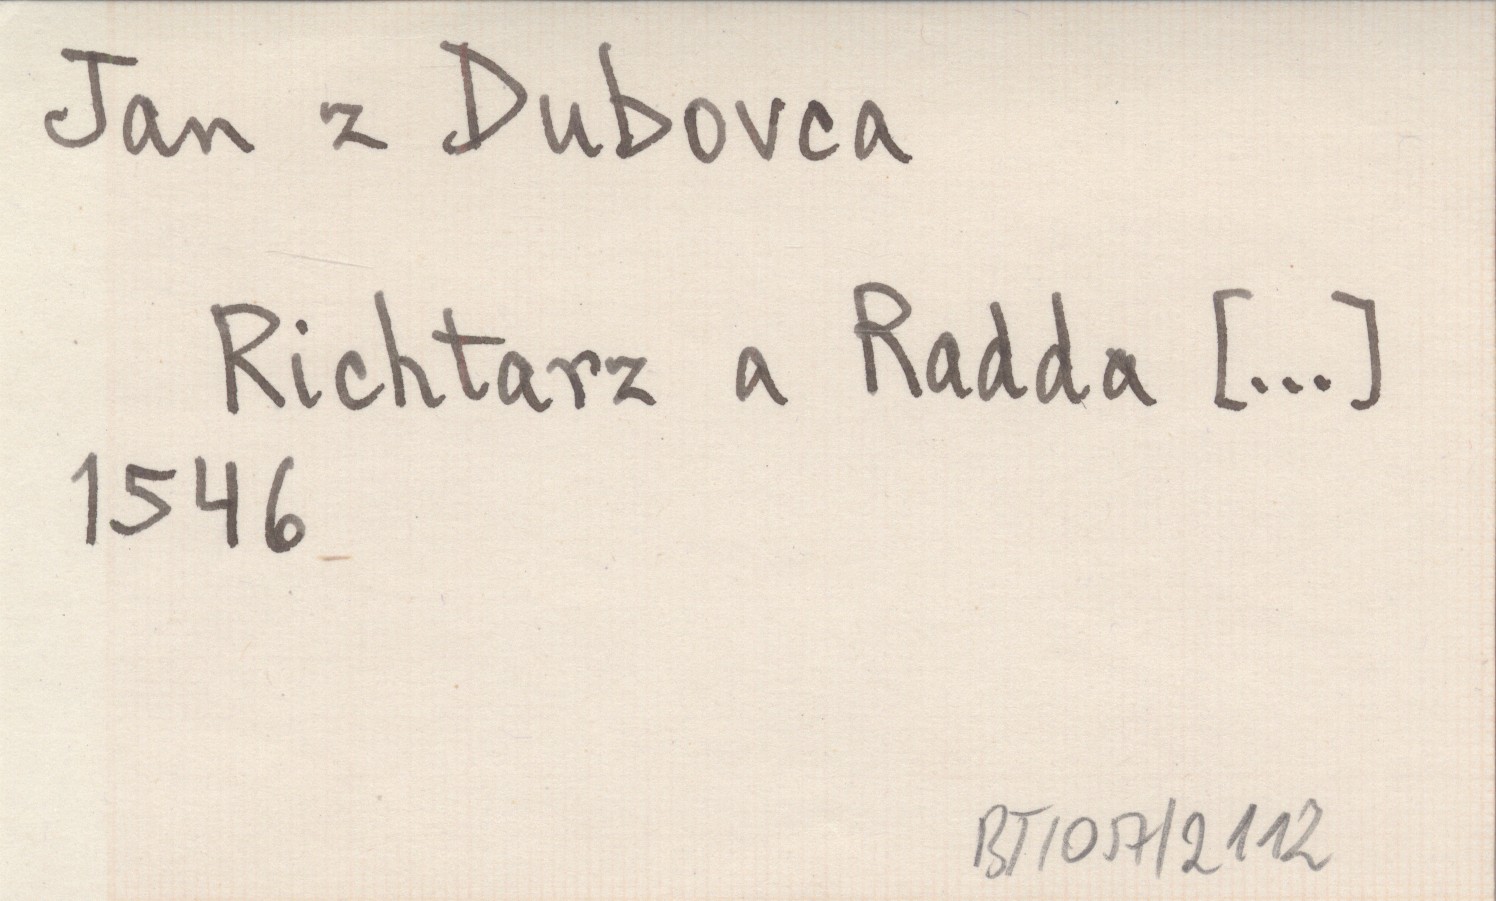 Jan z Dubovca
Richtarz a Radda [...]
1546
BT/057/2112